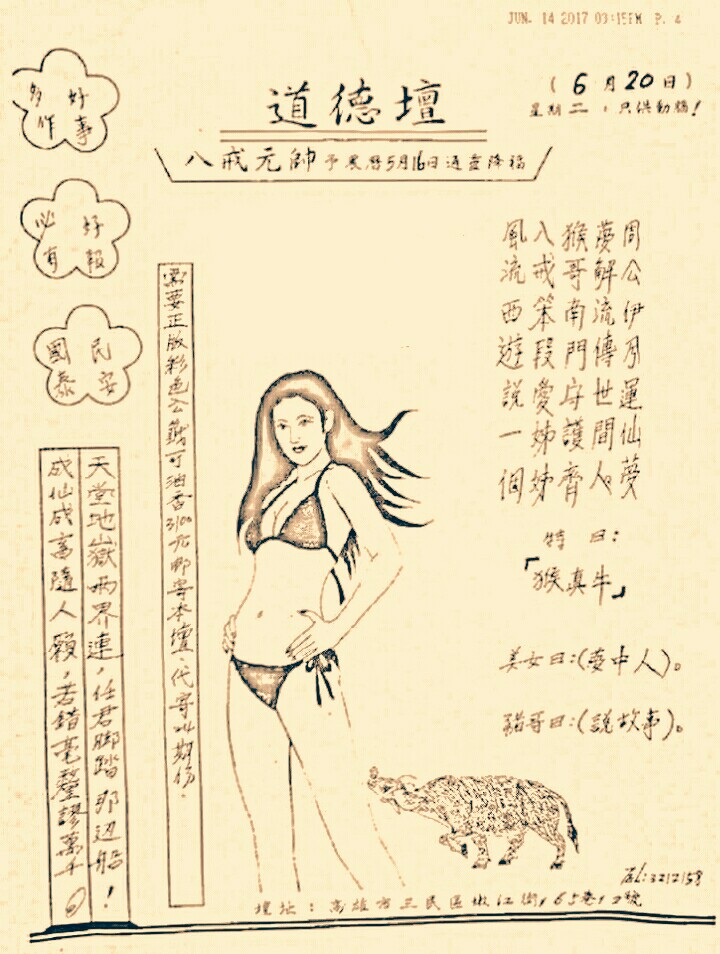 JUN. 14 2017 03:15PM P. 4
道德壇
(6月20日)
星期二，只供勸醒！
八戒元帥 予農曆5月16日通靈降福
好事
多作
好報
必有
民安
國泰
周公伊夙運仙夢
夢解流傳世間人
猴哥南門守護齊
八戒笨段愛姊姊
風流西遊說一個
特曰：
「猴真牛」
美女曰：(夢中人)。
豬哥曰：(說故事)。
需要正版彩色公籤可油香3100元郵寄本壇．代寄24期份．
天堂地嶽兩界連，任君脚踏那边船！
成仙成富隨人願，若錯毫釐謬萬千。
TEL:3212158
壇址：高雄市三民區嫩江街，65巷12號